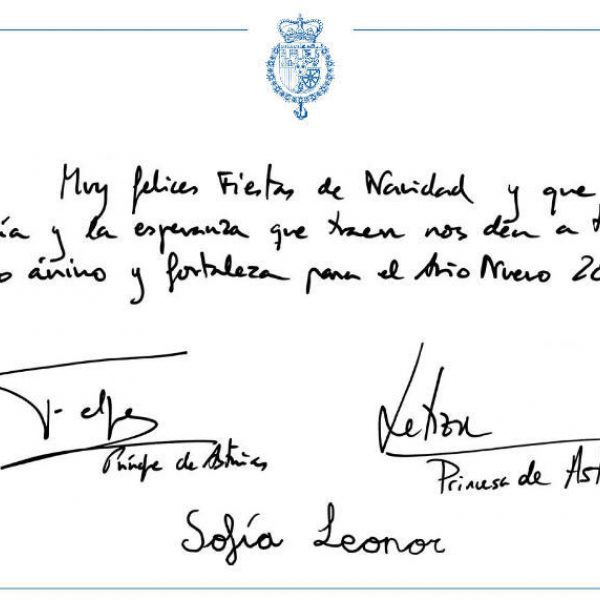 Muy felices Fiestas de Navidad y que
ía y la esperanza que traen nos den a t
o ánimo y fortaleza para el Año Nuevo 20
Felipe
Letizia
Príncipe de Asturias
Princesa de Ast
Sofía Leonor